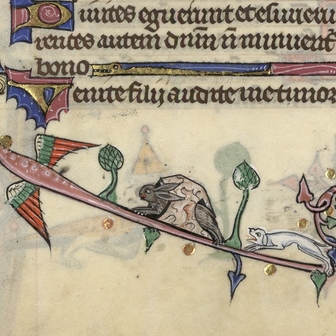 Diuites eguerunt et esurier
rentes autem dnm̄ n̄ minuent
bono
Uenite filij audite me timor